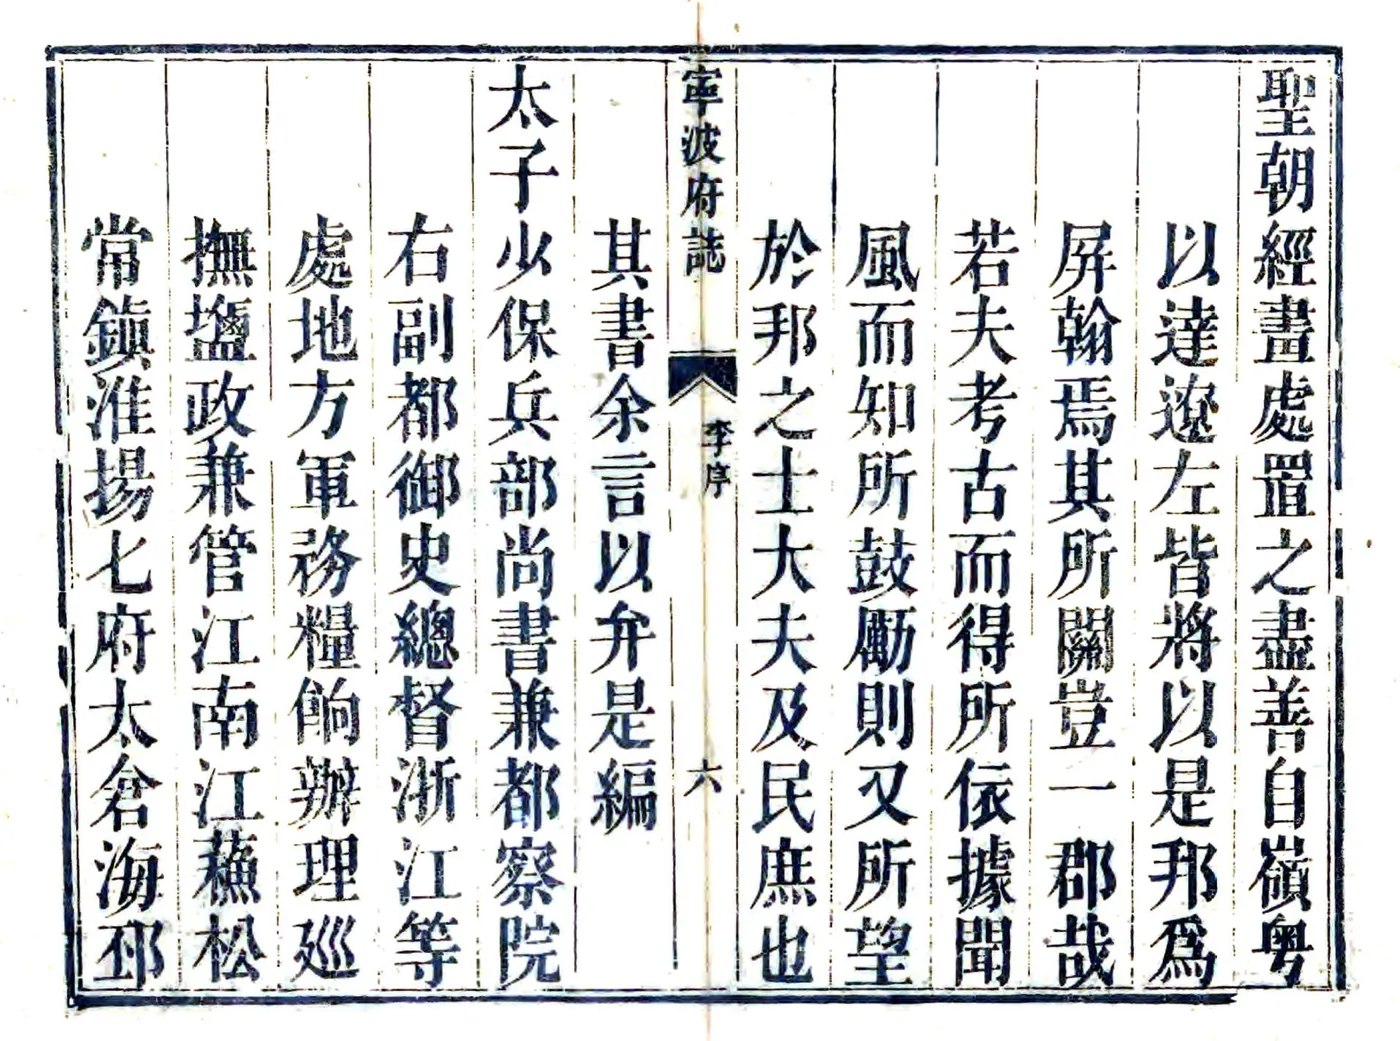 聖朝經畫處置之盡善自嶺粤
以達遼左皆將以是邦爲
屏翰焉其所關豈一郡哉
若夫考古而得所依據聞
風而知所鼓勵則又所望
於邦之士大夫及民庶也
寧波府誌
李序
六
其書余言以弁是編
太子少保兵部尚書兼都察院
右副都御史總督浙江等
處地方軍務糧餉辦理巡
撫鹽政兼管江南江蘇松
常鎮淮揚七府太倉海邳